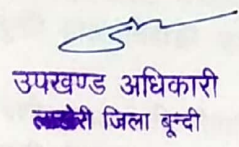 उपखण्ड अधिकारी
लाखेरी जिला बून्दी